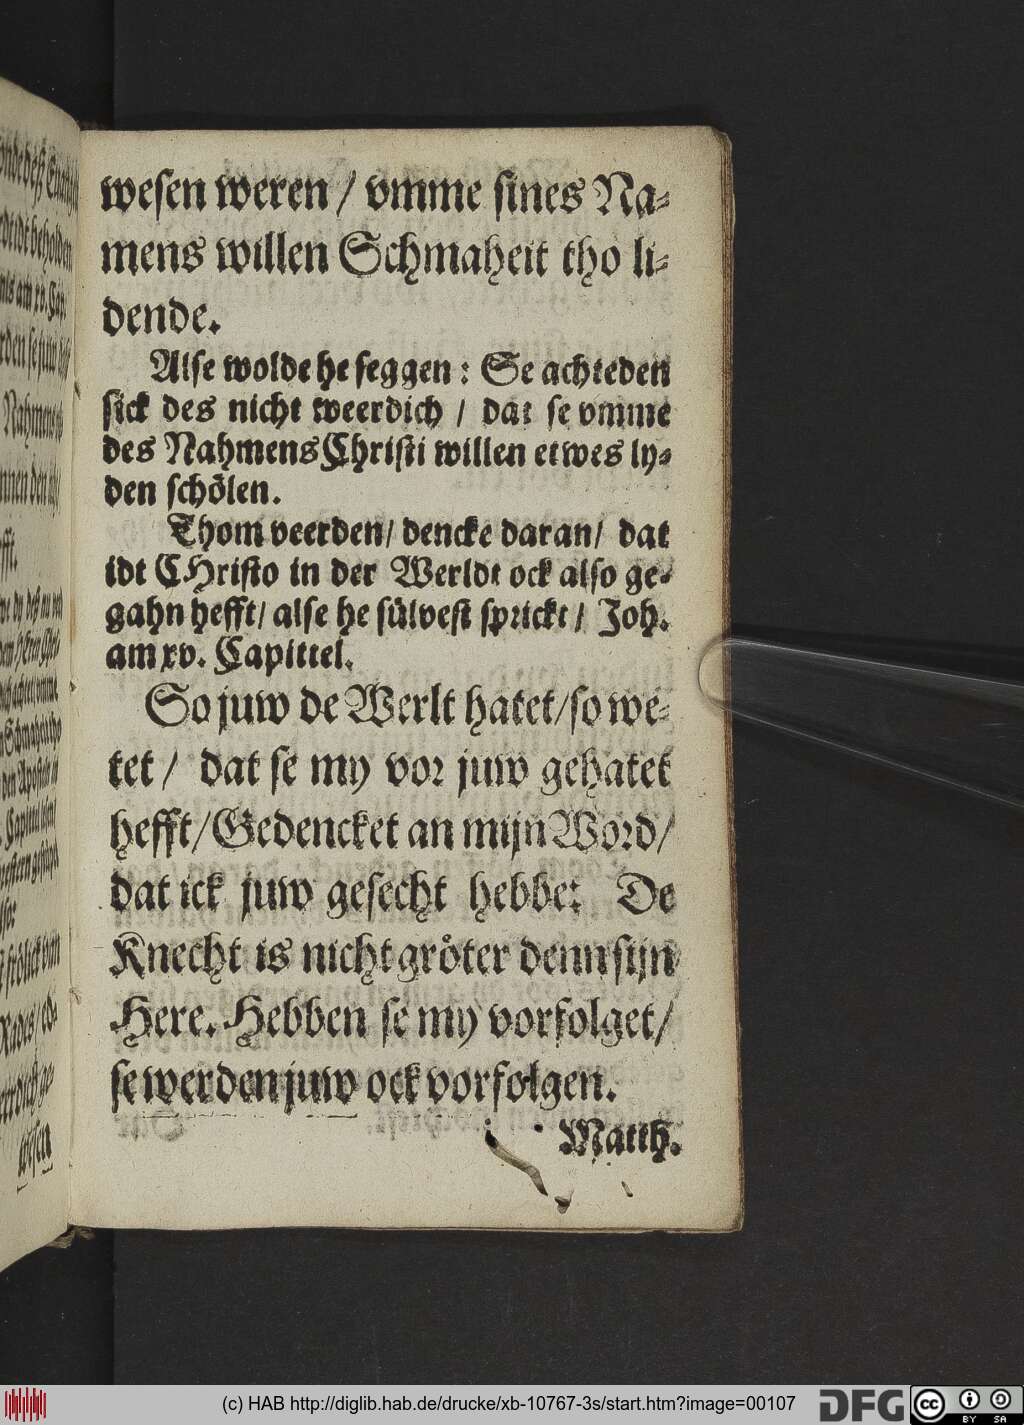 wesen weren / vmme sines Na⸗
mens willen Schmaheit tho li⸗
dende.
Alse wolde he seggen : Se achteden
sick des nicht weerdich / dat se vmme
des Nahmens Christi willen etwes ly⸗
den schölen.
Thom veerden / dencke daran / dat
idt CHristo in der Werldt ock also ge⸗
gahn hefft / alse he sülvest sprickt / Joh.
am xv. Capittel.
So juw de Werlt hatet / so we⸗
tet / dat se my vor juw gehatet
hefft / Gedencket an mijn Word /
dat ick juw gesecht hebbe: De
Knecht is nicht gröter denn sijn
Here. Hebben se my vorfolget /
se werden juw ock vorfolgen.
Matth.
(c) HAB http://diglib.hab.de/drucke/xb-10767-3s/start.htm?image=00107
DFG
cc
BY SA